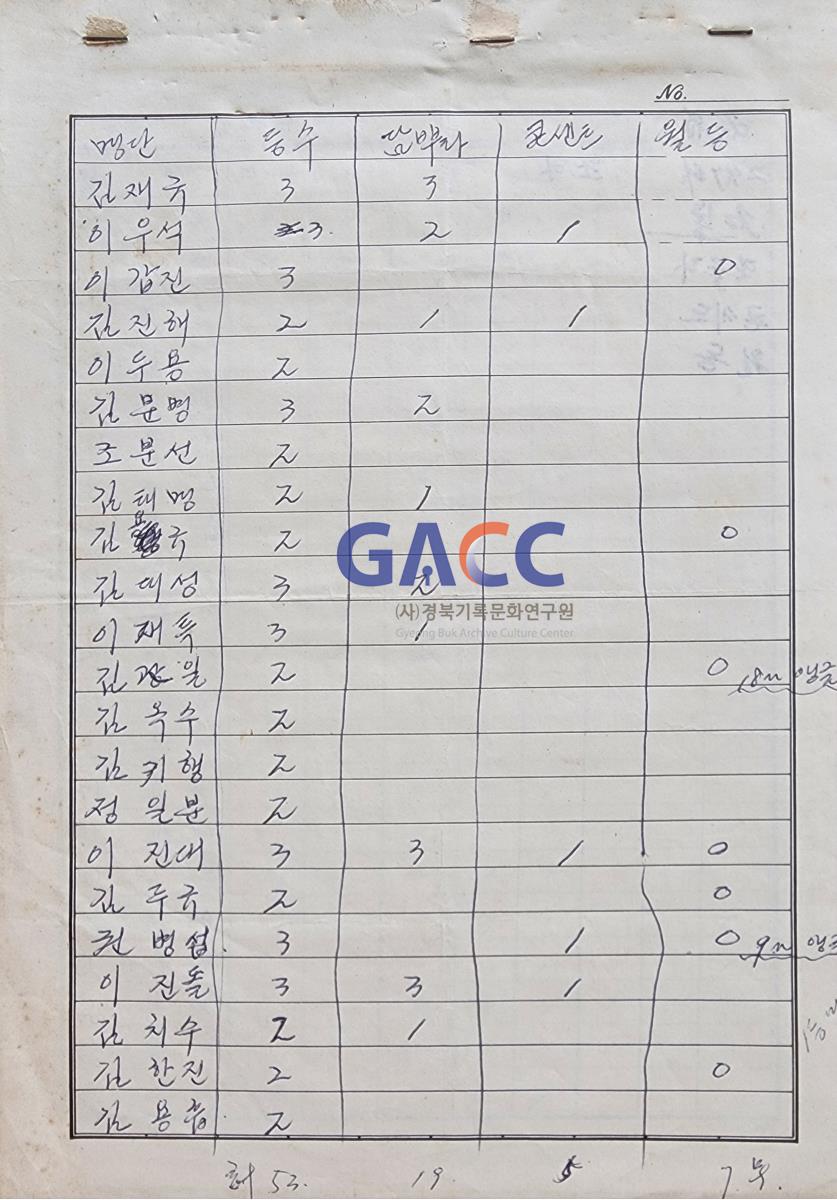 No.
명단 등수 담뿌라 콘센트 월등
김재국 3 3
이우석 3. 2 1
이갑진 3 0
김진해 2 1 1
이두용 2
김문병 3 2
조분선 2
김태명 2 1
김 국 2 0
GACC
김대성 3 2
(사)경북기록문화연구원
이재특 3 1
Gyeong Buk Archive Culture Center
김광일 2 0 18m 앵글
김옥수 2
김키행 2
정일분 2
이진대 3 3 1 0
김주국 2 0
권병섭. 3 1 0 9m 앵글
이진돌 3 3 1
김치수 2 1
김한진 2 0
김용 2
계 53. 19. 5 7